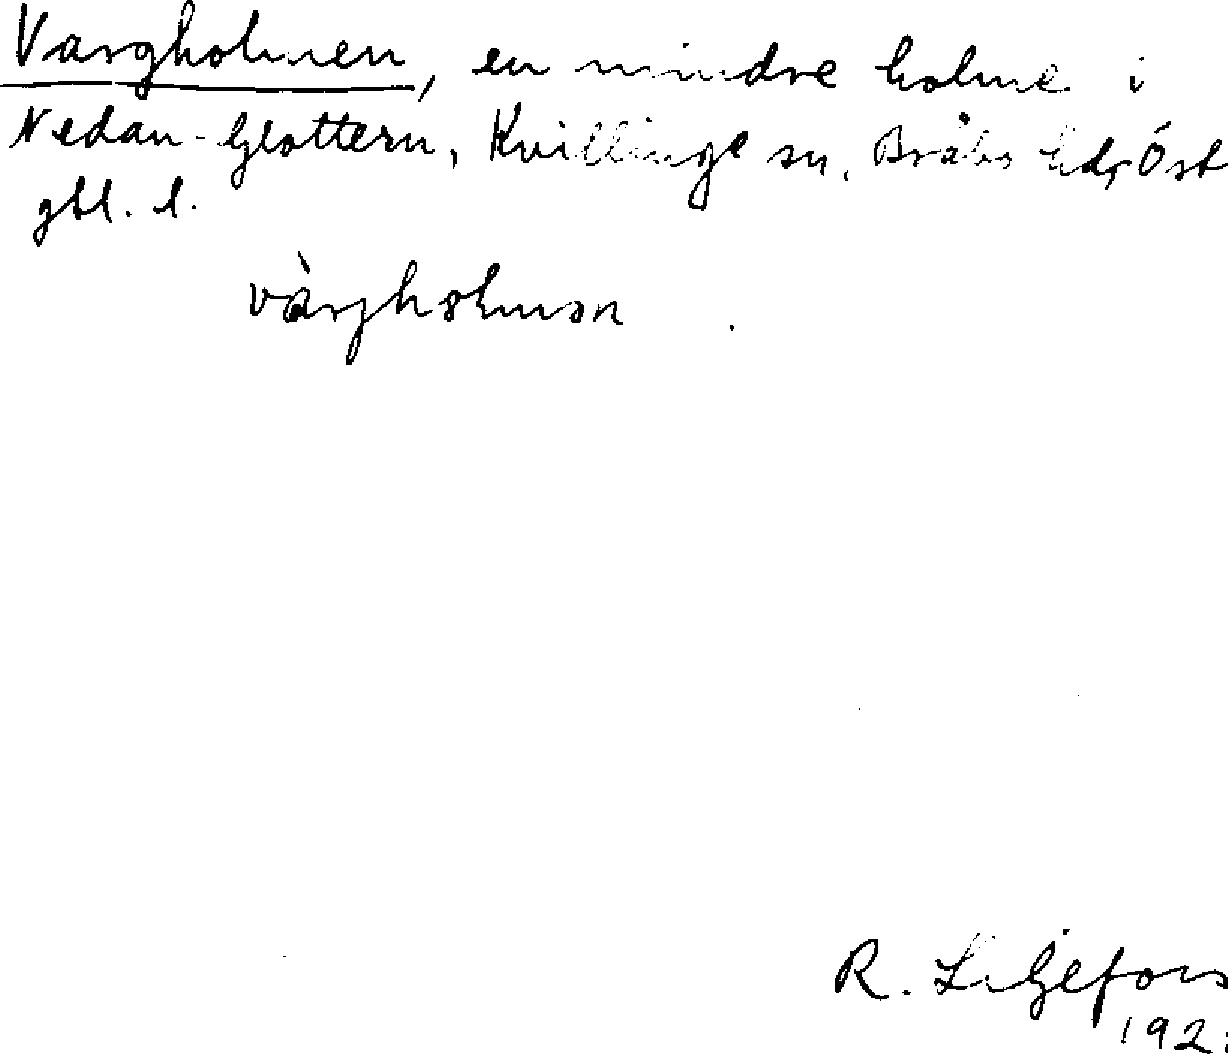 Vargholmen, en mindre holme i
Nedan-Glottern, Kvillinge sn, Bråbo hd, Öst
gtl. l.
vàrjholmən
R. Liljefors
192